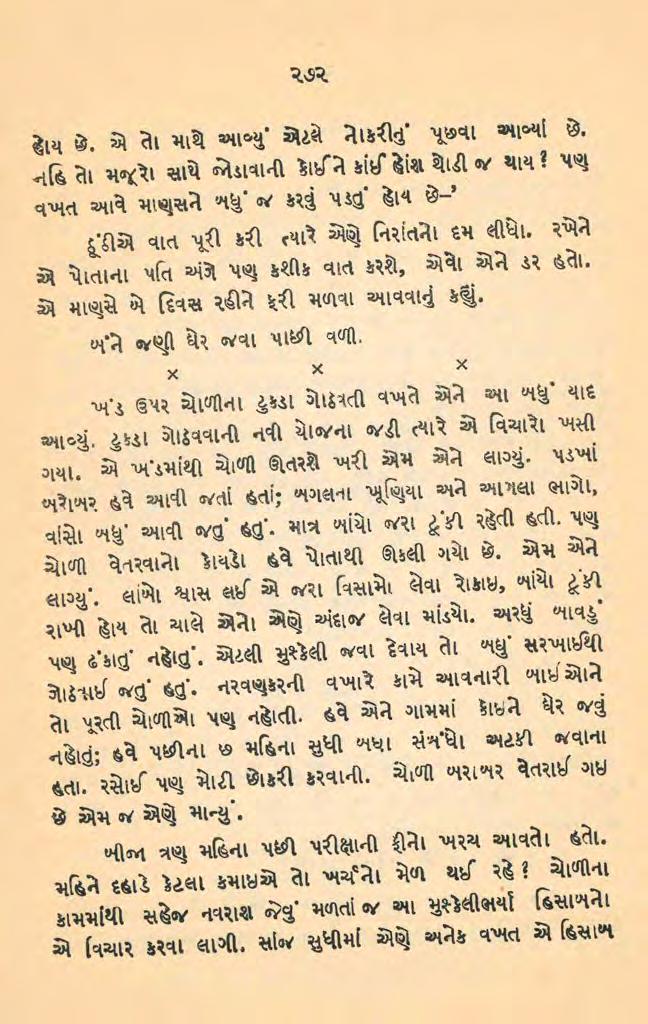 ૨૭૨
હોય છે. એ તો માથે આવ્યું એટલે નોકરીનું પૂછવા આવ્યાં છે.
નહિ તો મજૂરો સાથે જોડાવાની કોઈને કાંઈ હોંશ થોડી જ થાય ? પણ
વખત આવે માણસને બધું જ કરવું પડતું હોય છે–’
ઠૂંઠીએ વાત પૂરી કરી ત્યારે એણે નિરાંતનો દમ લીધો. રખેને
એ પોતાના પતિ અંગે પણ કશીક વાત કરશે, એવો એને ડર હતો.
એ માણસે બે દિવસ રહીને ફરી મળવા આવવાનું કહ્યું.
બંને જણી ઘેર જવા પાછી વળી.
× × ×
ખંડ ઉપર ચોળીના ટુકડા ગોઠવતી વખતે એને આ બધું યાદ
આવ્યું. ટુકડા ગોઠવવાની નવી યોજના જડી ત્યારે એ વિચારો ખસી
ગયા. એ ખંડમાંથી ચોળી ઊતરશે ખરી એમ એને લાગ્યું. પડખાં
બરોબર હવે આવી જતાં હતાં; બગલના ખૂણિયા અને આગલા ભાગો,
વાંસો બધું આવી જતું હતું. માત્ર બાંયો જરા ટૂંકી રહેતી હતી. પણ
ચોળી વેતરવાનો કોયડો હવે પોતાથી ઊકલી ગયો છે. એમ એને
લાગ્યું. લાંબો શ્વાસ લઈ એ જરા વિસામો લેવા રોકાઇ, બાંયો ટૂંકી
રાખી હોય તો ચાલે એનો એણે અંદાજ લેવા માંડયો. અરધું બાવડું
પણ ઢંકાતું નહોતું. એટલી મુશ્કેલી જવા દેવાય તો બધું સરખાઈથી
ગોઠવાઈ જતું હતું. નરવણકરની વખારે કામે આવનારી બાઈઓને
તો પૂરતી ચોળીઓ પણ નહોતી. હવે એને ગામમાં કોઇને ઘેર જવું
નહોતું; હવે પછીના છ મહિના સુધી બધા સંબંધો અટકી જવાના
હતા. રસોઈ પણ મોટી છોકરી કરવાની. ચોળી બરાબર વેતરાઈ ગઇ
છે એમ જ એણે માન્યું.
બીજા ત્રણ મહિના પછી પરીક્ષાની ફીનો ખરચ આવતો હતો.
મહિને દહાડે કેટલા કમાઇએ તો ખર્ચનો મેળ થઈ રહે ? ચોળીના
કામમાંથી સહેજ નવરાશ જેવું મળતાં જ આ મુશ્કેલીભર્યા હિસાબનો
એ વિચાર કરવા લાગી. સાંજ સુધીમાં એણે અનેક વખત એ હિસાબ